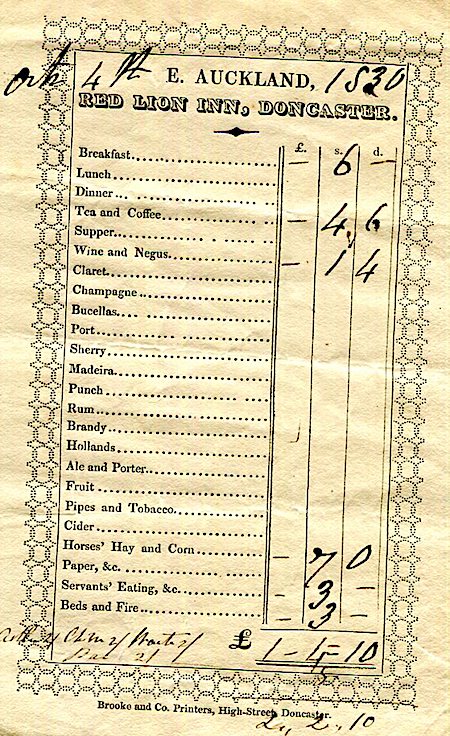 Octr 4th E. AUCKLAND, 1830
RED LION INN, DONCASTER.
£. s. d.
Breakfast — 6 —
Lunch
Dinner
Tea and Coffee — 4 6
Supper
Wine and Negus — 1 4
Claret
Champagne
Bucellas
Port
Sherry
Madeira
Punch
Rum
Brandy
Hollands
Ale and Porter
Fruit
Pipes and Tobacco
Cider
Horses' Hay and Corn — 7 0
Paper, &c.
Servants' Eating, &c. — 3 —
Beds and Fire — 3 —
£ 1 - 4 - 10
Brooke and Co. Printers, High-Street, Doncaster.
2, 2, 10